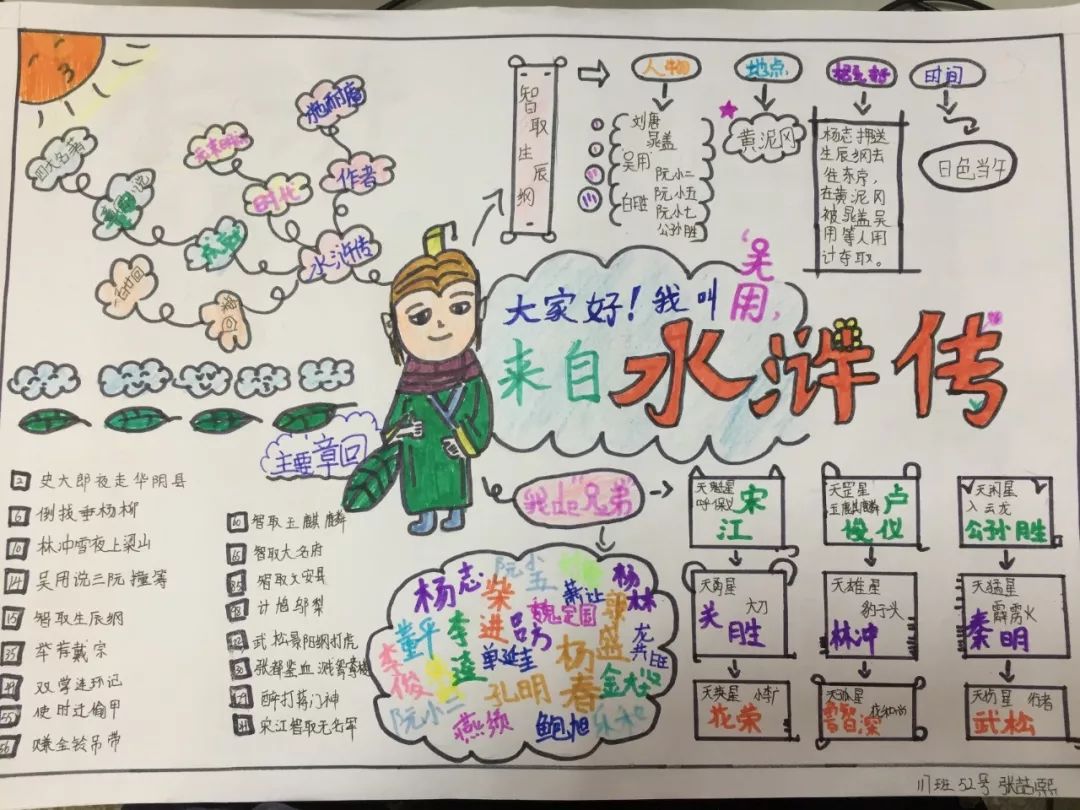 3
四大名著
施耐庵
元末明初
时代
作者
水浒传
章回
智取生辰纲
人物
地点
时间
刘唐
晁盖
吴用
阮小二
白胜
阮小五
阮小七
公孙胜
黄泥冈
杨志押送
生辰纲去
往东京,
在黄泥冈
被晁盖吴
用等人用
计夺取。
日色当午
大家好!我叫“吴用,
来自水浒传
主要章回
2 史大郎夜走华阴县
6 倒拔垂杨柳
10 林冲雪夜上梁山
14 吴用说三阮撞筹
15 智取生辰纲
35 举荐戴宗
双掌连环记
55 使时迁偷甲
56 赚金铃吊带
60 智取玉麒麟
65 智取大名府
智取文安县
计鸩邬梨
武松景阳纲打虎
醉打蒋门神
宋江智取无名军
我的“兄弟
杨志
阮小五
柴进
萧让
杨林
魏定国
董平
李逵
吕方
单廷圭
李俊
杨春
孔明
阮小二
燕顺
鲍旭
天魁星
呼保义
宋江
天罡星
玉麒麟
卢俊仪
天闲星
入云龙
公孙胜
天勇星
大刀
关胜
天雄星
豹子头
林冲
天猛星
霹雳火
秦明
天英星
小李广
花荣
天孤星
花和尚
鲁智深
天伤星
行者
武松
117班 52号 张喆熙